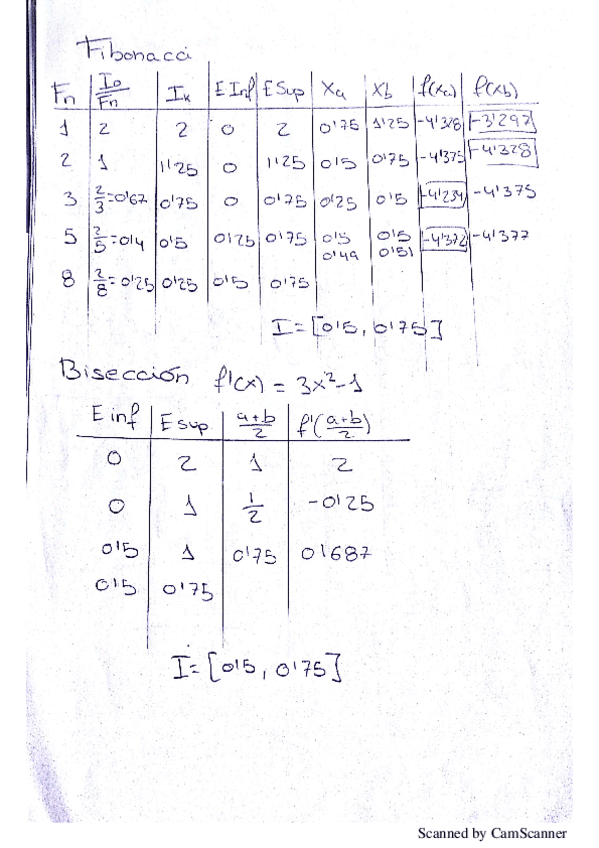 Fibonacci
Fn | I0/Fn | Ik | E Inf | E Sup | Xa | Xb | f(xa) | f(xb)
1 | 2 | 2 | 0 | 2 | 0'75 | 1'25 | -4'328 | -3'297
2 | 1 | 1'25 | 0 | 1'25 | 0'5 | 0'75 | -4'375 | -4'328
3 | 2/3=0'67 | 0'75 | 0 | 0'75 | 0'25 | 0'5 | -4'234 | -4'375
5 | 2/5=0'4 | 0'5 | 0'25 | 0'75 | 0'5 | 0'5 | -4'372 | -4'377
0'49 | 0'51
8 | 2/8=0'25 | 0'25 | 0'5 | 0'75
I=[0'5, 0'75]
Bisección f'(x) = 3x²-1
E inf | E sup | a+b/2 | f'(a+b/2)
0 | 2 | 1 | 2
0 | 1 | 1/2 | -0'25
0'5 | 1 | 0'75 | 0'687
0'5 | 0'75
I=[0'5, 0'75]
Scanned by CamScanner